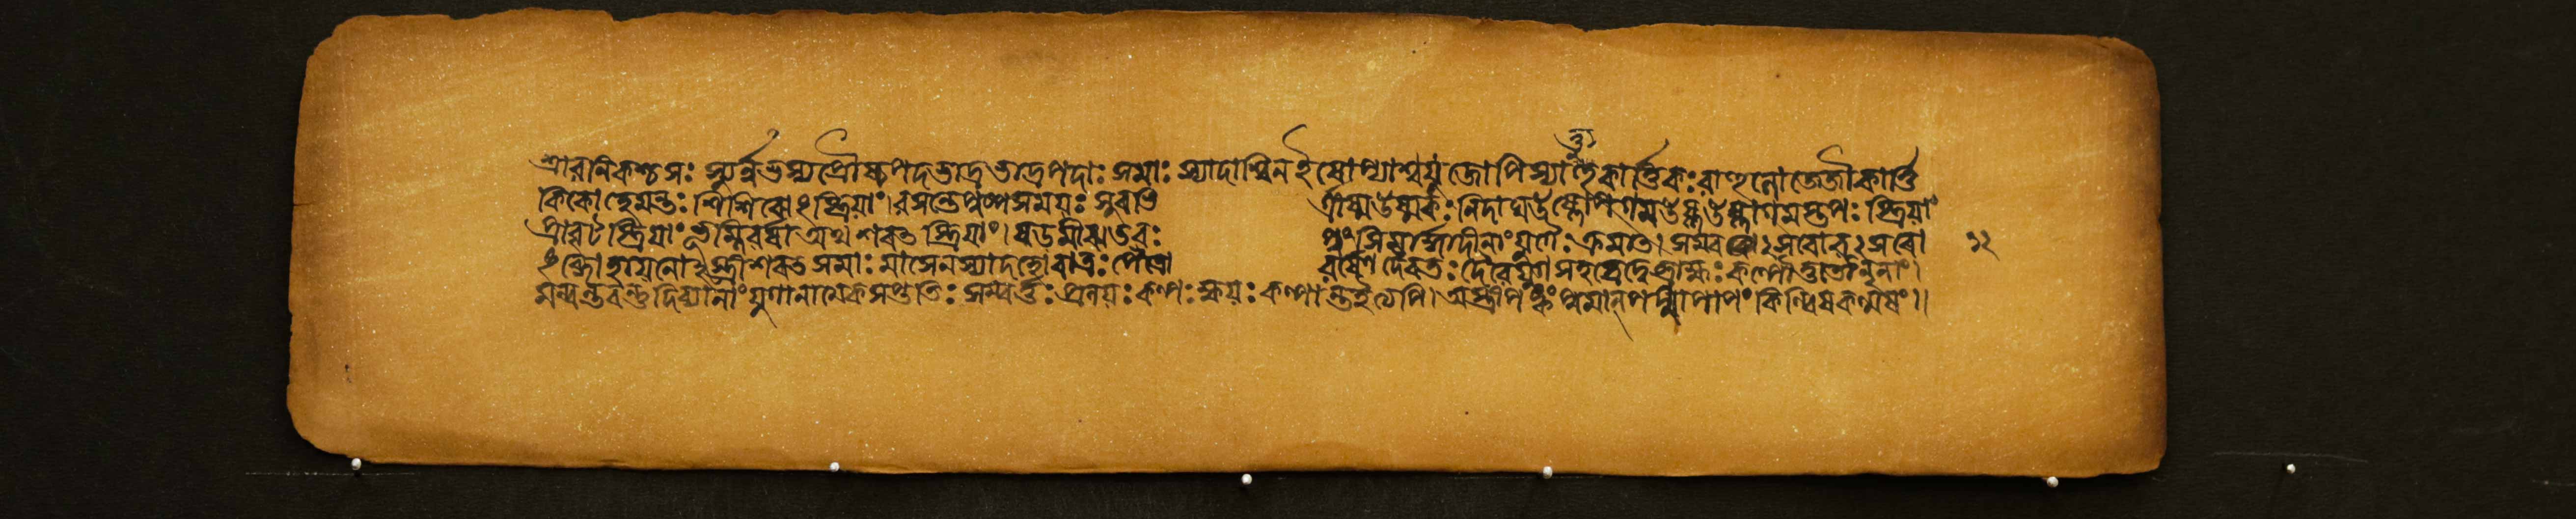 শ্রাবনিকশ্চসঃ স্যুর্ন্নভস্যপ্রৌষ্ঠপদভাদ্রভাদ্রপদাঃ সমাঃ স্যাদাশ্বিনইষোপ্যাশ্বযুজোপিস্যাত্তুকার্ত্তিকঃবাহুলোর্জৌকার্ত্তি
কিকোহেমন্তঃ শিশিৰোঽস্ত্রিয়াং।বসন্তেপুষ্পসময়ঃ সুৰভি র্গ্রীষ্মউষ্মকঃনিদাঘউষ্ণোপগমউষ্ণউষ্মাগমস্তপঃ স্ত্রিয়াং
প্রাবৃট্‌স্ত্রিয়াংভূম্নিবর্ষাঅথশৰত্স্ত্রিয়াং।ষডমীঋতবঃ পুংসিমার্গাদীনাংযুগৈঃক্রমাৎ। সম্বৎসৰোবৎসৰো ১২
ঽব্দোহায়নোঽস্ত্রীশৰৎসমাঃমাসেনস্যাদহোৰাত্রঃপৈত্রো বর্ষেণদৈবতঃদৈবেযুগসহস্রেদ্বেব্রাহ্মঃকল্পৌতুতৌনৃনাং।
মন্বন্তৰন্তুদিব্যানাংযুগানামেকসপ্ততিঃ সম্বর্ত্তঃপ্রলয়ঃকল্পঃক্ষয়ঃকল্পান্তইত্যপি।অস্ত্রীপঙ্কংপুমান্‌পাপ্মাপাপংকিল্বিষকল্মষং।।